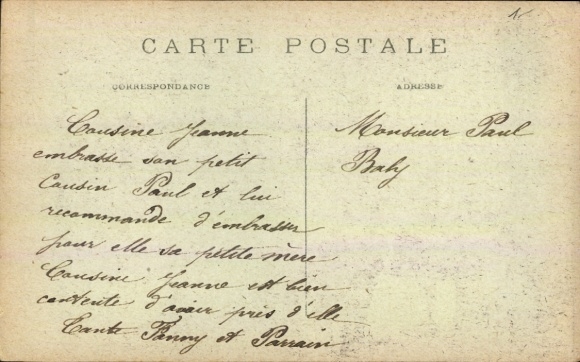 CARTE POSTALE
CORRESPONDANCE
ADRESSE
Cousine Jeanne
embrasse son petit
Cousin Paul et lui
recommande d'embrasser
pour elle sa petite mère
Cousine Jeanne est bien
contente d'avoir près d'elle
Tante Fanny et Parrain
Monsieur Paul